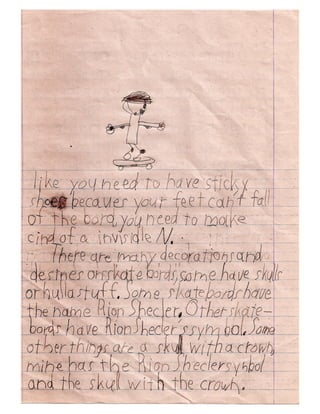 like you need to have sticky
shoes becaues your feet can't fall
of the bord, you need to make
cind of a invisible N.
There are many decorations and
destnes on skate bords, some have skulls
or nulla stuff. Some skatebords have
the name Rion Shecler. Other skate-
bords have Rion Sheclers symbol. Some
other things are a skull with a crown,
mine has the Rion Sheclersymbol
and the skull with the crown.